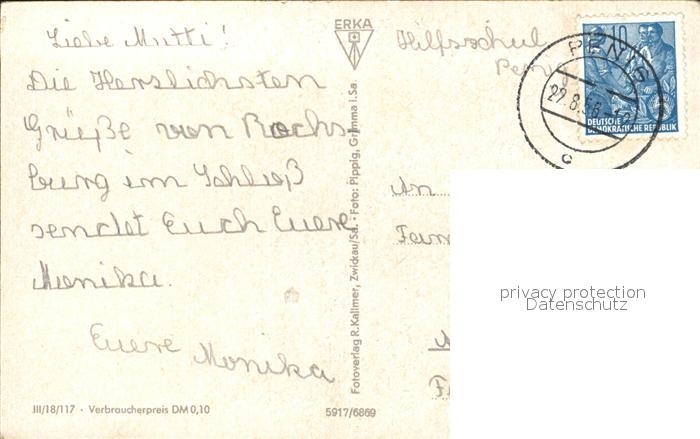 Liebe Mutti!
Die Herzlichsten
Grüße von Rochs-
burg im Schloß
sendet Euch Euere
Monika.
Euere Monika
III/18/117 · Verbraucherpreis DM 0,10
5917/6869
ERKA
Fotoverlag R. Kallmer, Zwickau/Sa. · Foto: Pippig, Grimma i. Sa.
Hilfsschul
Penig
PENIG
22.8.58
c
10
DEUTSCHE
DEMOKRATISCHE REPUBLIK
An
Fam
privacy protection
Datenschutz